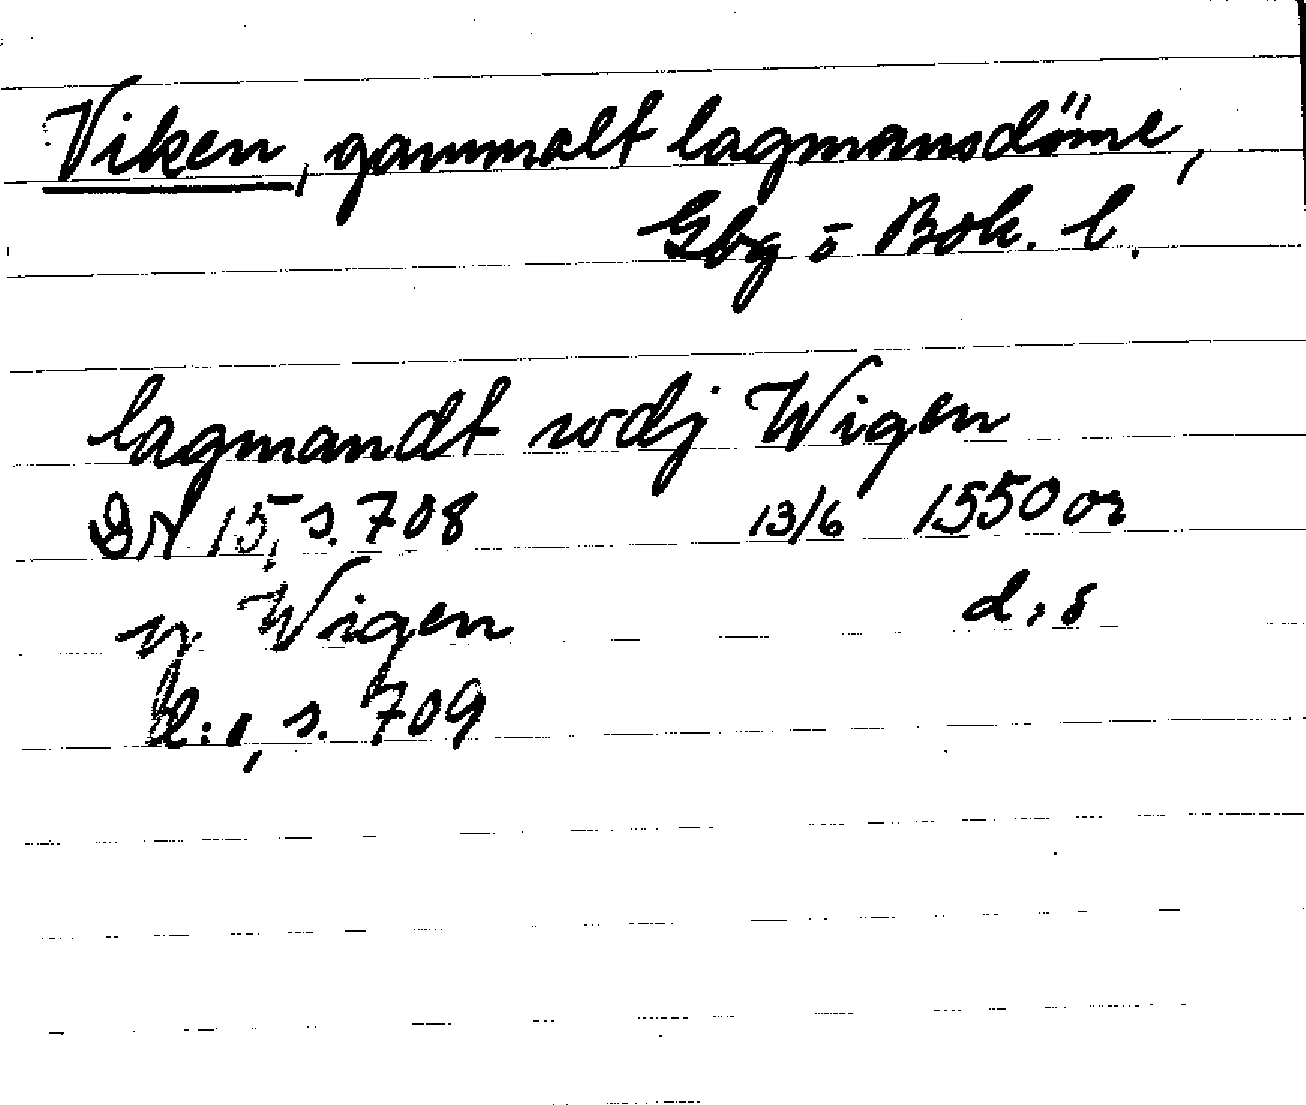 Viken, gammalt lagmansdöme,
Gbg o Boh. l.
lagmandt wdj Wigen
DN 15, s. 708 13/6 1550 or
y Wigen d:o
d:o, s. 709